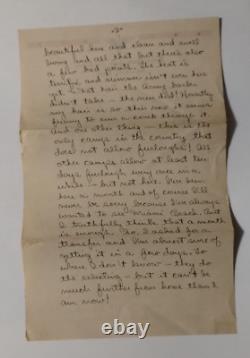 -3-
beautiful here and clean and smell
wong and all that but there's also
a few bad points. The heat is
terrific and summer isn't even here
yet. What hair the Army barber
didn't take - the sun did! Honestly
my hair is so thin now it isn't
funny to run a comb through it.
And one other thing - this is the
only camp in the country that
does not allow furloughs! All
other camps allow at least ten
days furlough every once in a
while - but not here. I've been
here a month and of course I'll
never be sorry because I've always
wanted to see Miami Beach. But
I truthfully think that a month
is enough. So, I asked for a
transfer and I'm almost sure of
getting it in a few days. To
where I don't know - they do
the selecting - but it can't be
much further from home than I
am now!